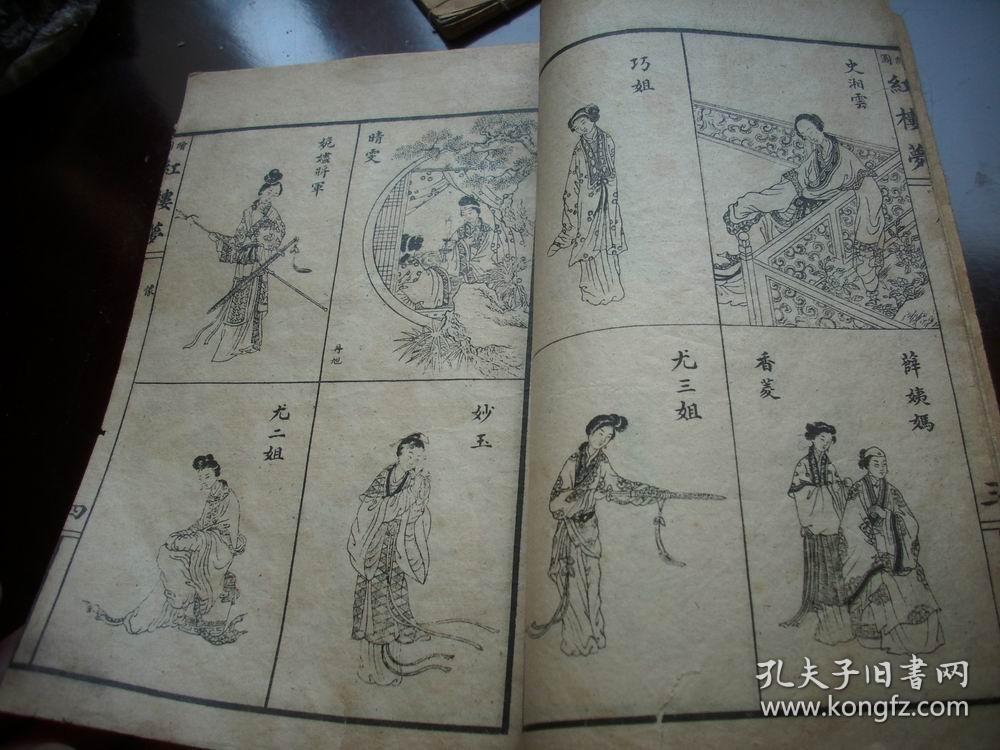 圖
紅樓夢
三
史湘雲
巧姐
薛姨媽
香菱
尤三姐
晴雯
丹旭
姽嫿將軍
妙玉
尤二姐
繪
紅樓夢
像
四
孔夫子旧书网
www.kongfz.com